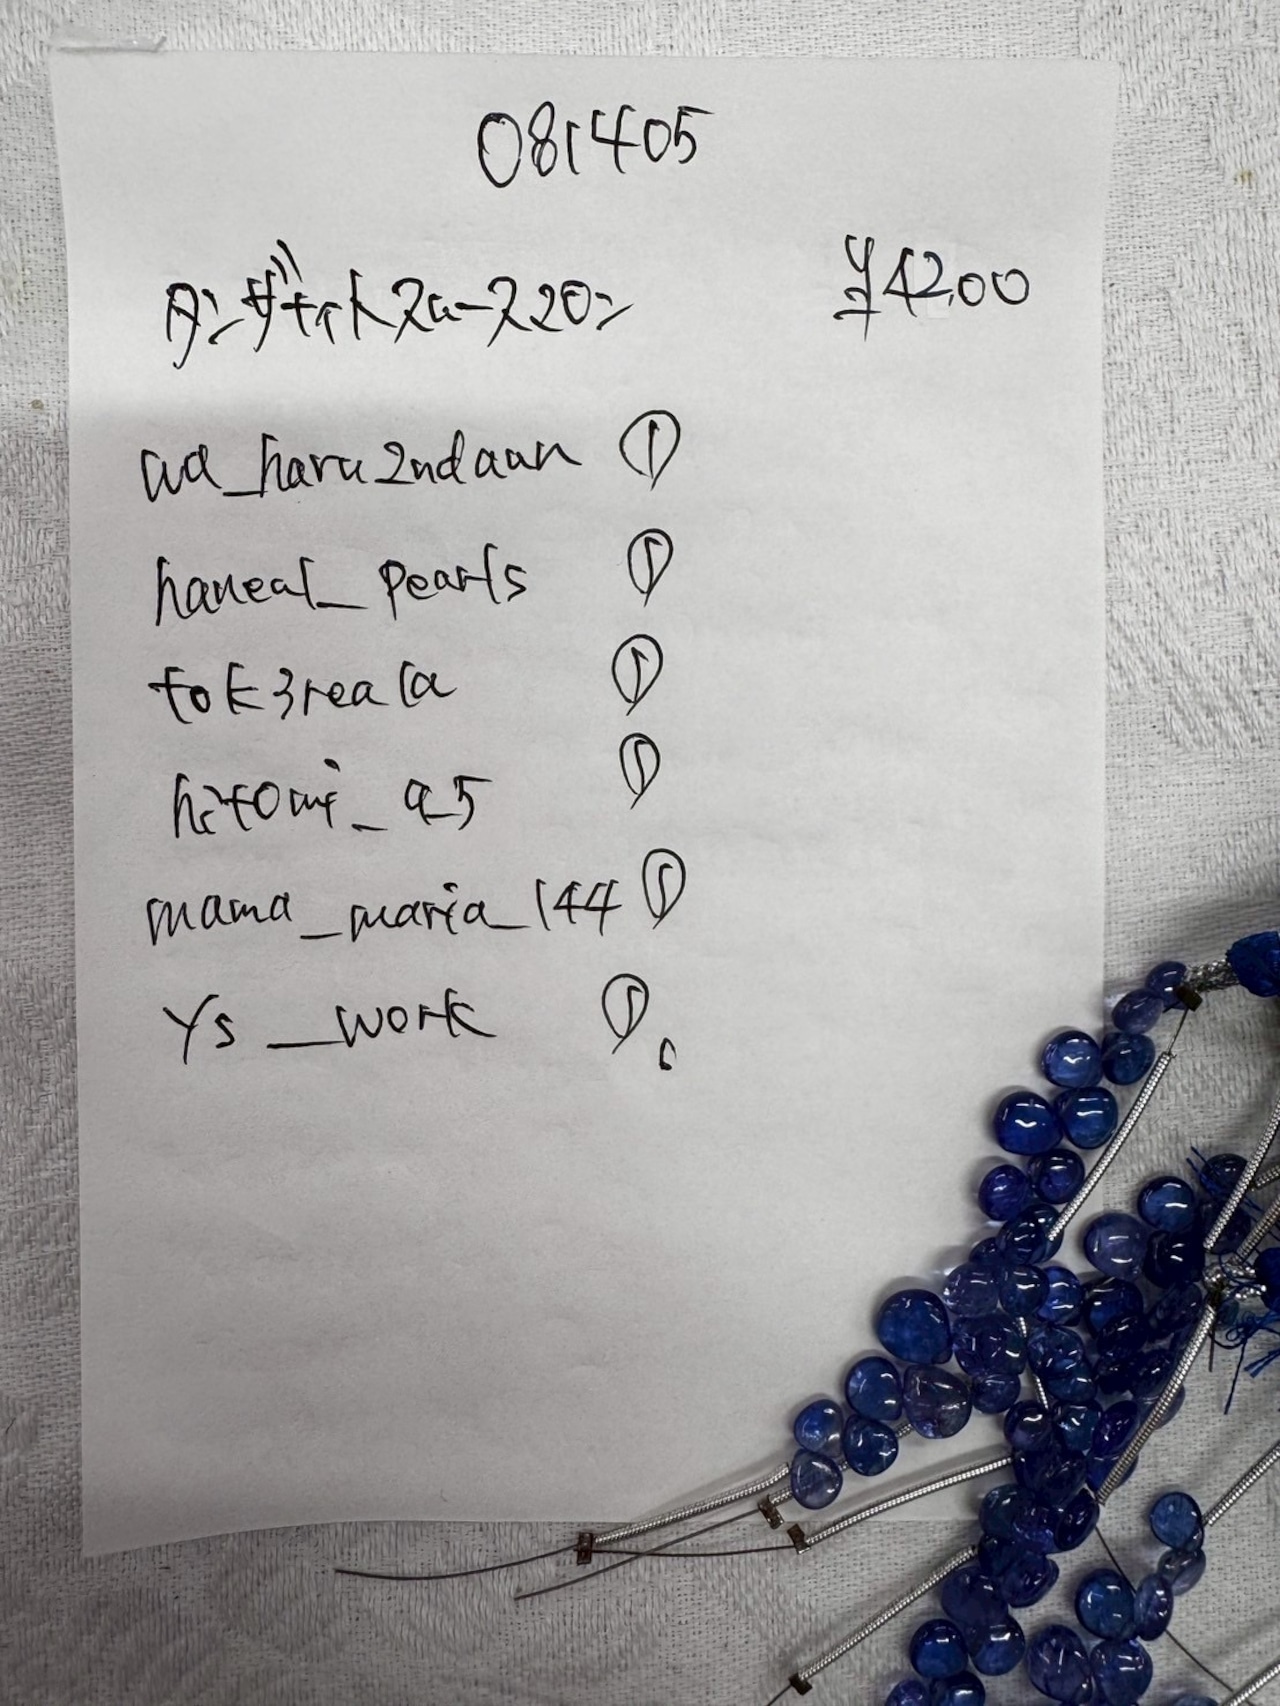 081405
タンザナイトスムース20コ ¥4200
wa_haru2ndaan ①
haneal_pearls ①
tok3reala ①
hitomi_a5 ①
mama_maria_144 ①
Ys_work ①
6